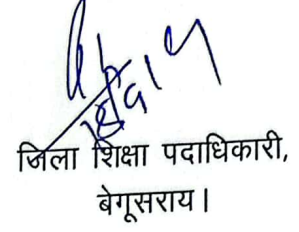 जिला शिक्षा पदाधिकारी,
बेगूसराय।